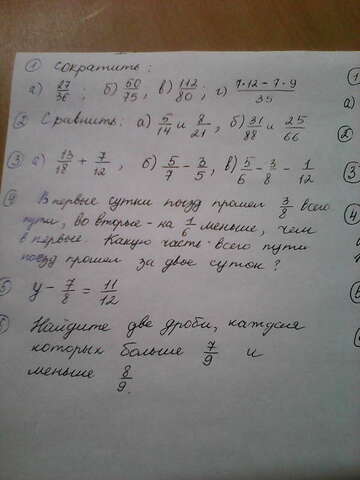 ① Сократить:
а) 27/36; б) 50/75, в) 112/80; г) (7·12-7·9)/35
② Сравнить: а) 5/14 и 8/21, б) 31/88 и 25/66
③ а) 13/18 + 7/12, б) 5/7 - 3/5, в) 5/6 - 3/8 - 1/12
④ В первые сутки поезд прошел 3/8 всего
пути, во вторые - на 1/6 меньше, чем
в первые. Какую часть всего пути
поезд прошел за двое суток?
⑤ y - 7/8 = 11/12
Найдите две дроби, каждая
которых больше 7/9 и
меньше 8/9.